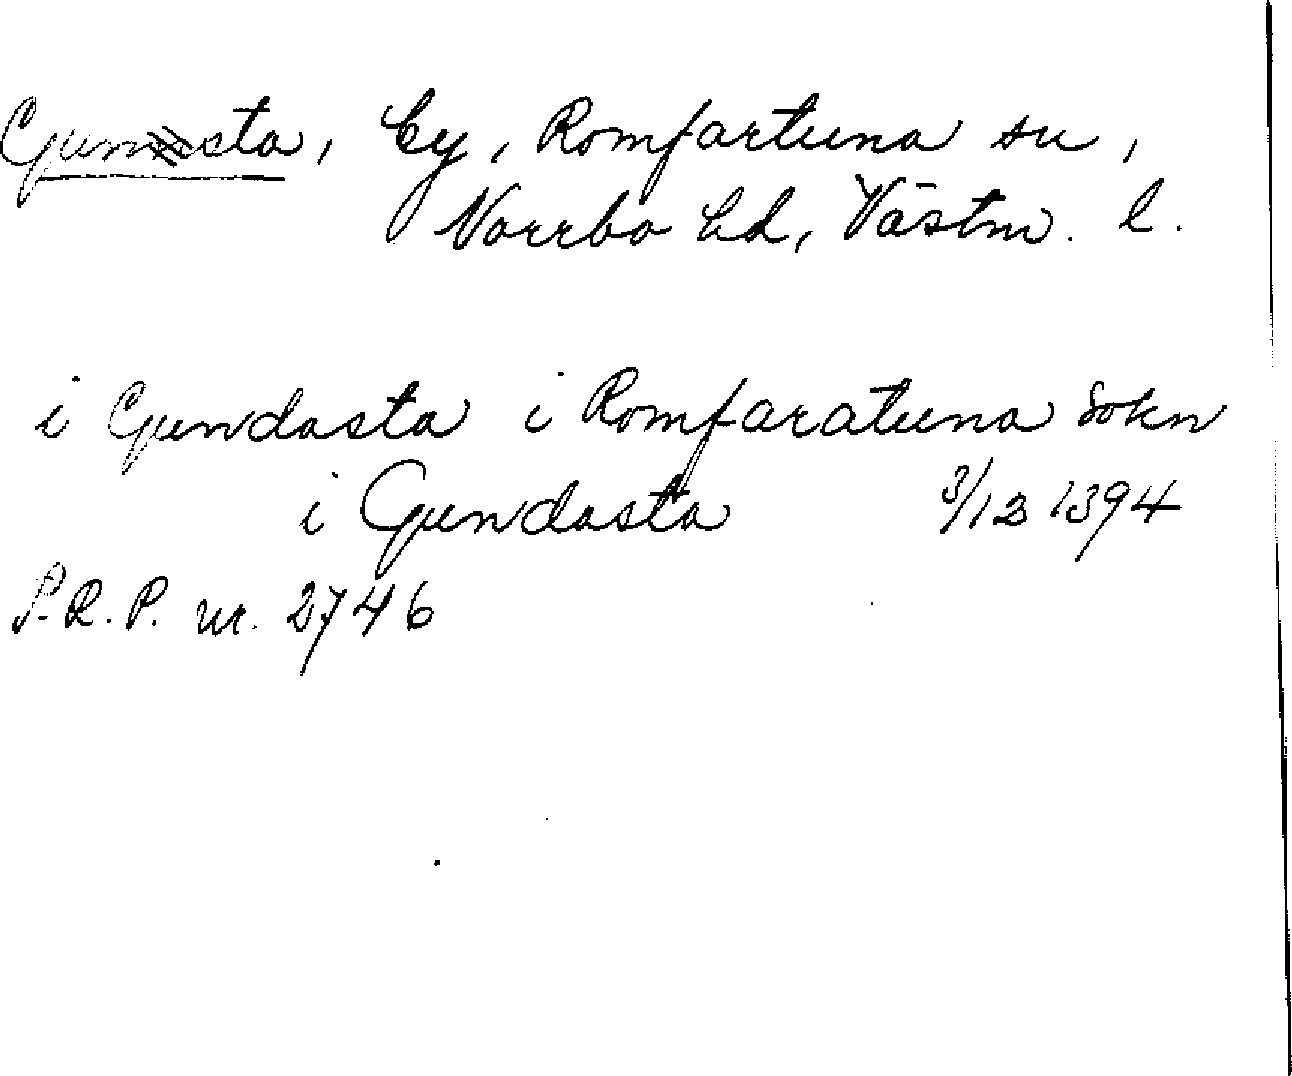 Gunsta, by, Romfartuna sn,
Norrbo hd, Västm. l.
i Gundasta i Romfaratuna Sokn
i Gundasta 3/12 1394
S.R.P. nr. 2746